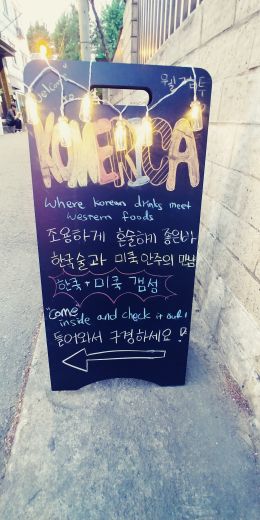 Welcome 웰컴투
KOMERICA
Where Korean drinks meet
western foods
조용하게 혼술하기 좋은바
한국술과 미국안주의 만남
한국+미국 갬성
"Come
inside and check it out!
들어와서 구경하세요!